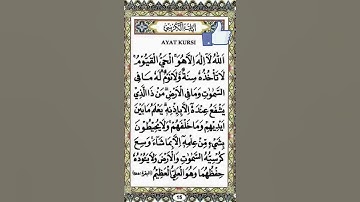 اية الكرسي
AYAT KURSI
اَللّٰهُ لَآ اِلٰهَ اِلَّا هُوَ ۚ اَلْحَيُّ الْقَيُّوْمُ
لَا تَأْخُذُهٗ سِنَةٌ وَّلَا نَوْمٌ ۗ لَهٗ مَا فِى
السَّمٰوٰتِ وَمَا فِى الْاَرْضِ ۗ مَنْ ذَا الَّذِيْ
يَشْفَعُ عِنْدَهٗٓ اِلَّا بِاِذْنِهٖ ۗ يَعْلَمُ مَا بَيْنَ
اَيْدِيْهِمْ وَمَا خَلْفَهُمْ ۚ وَلَا يُحِيْطُوْنَ
بِشَيْءٍ مِّنْ عِلْمِهٖٓ اِلَّا بِمَا شَآءَ ۚ وَسِعَ
كُرْسِيُّهُ السَّمٰوٰتِ وَالْاَرْضَ ۚ وَلَا يَـُٔوْدُهٗ
حِفْظُهُمَا ۚ وَهُوَ الْعَلِيُّ الْعَظِيْمُ
15